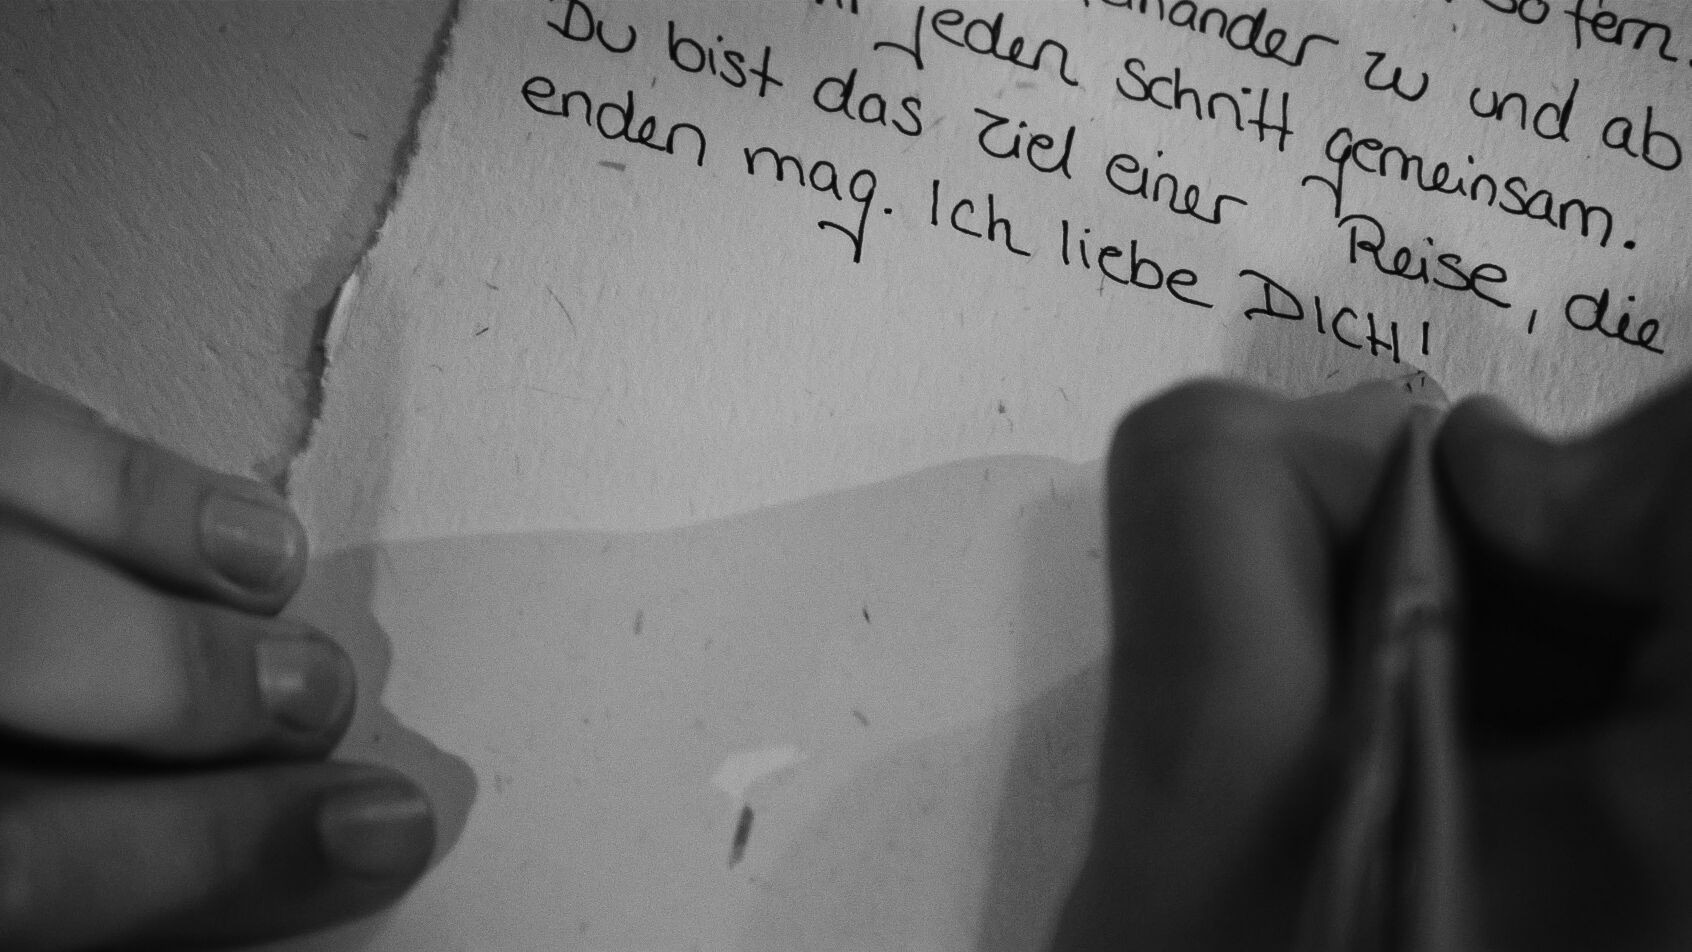 so fern.
zu und ab
jeden Schritt gemeinsam.
Du bist das Ziel einer Reise, die
enden mag. Ich liebe DICH!